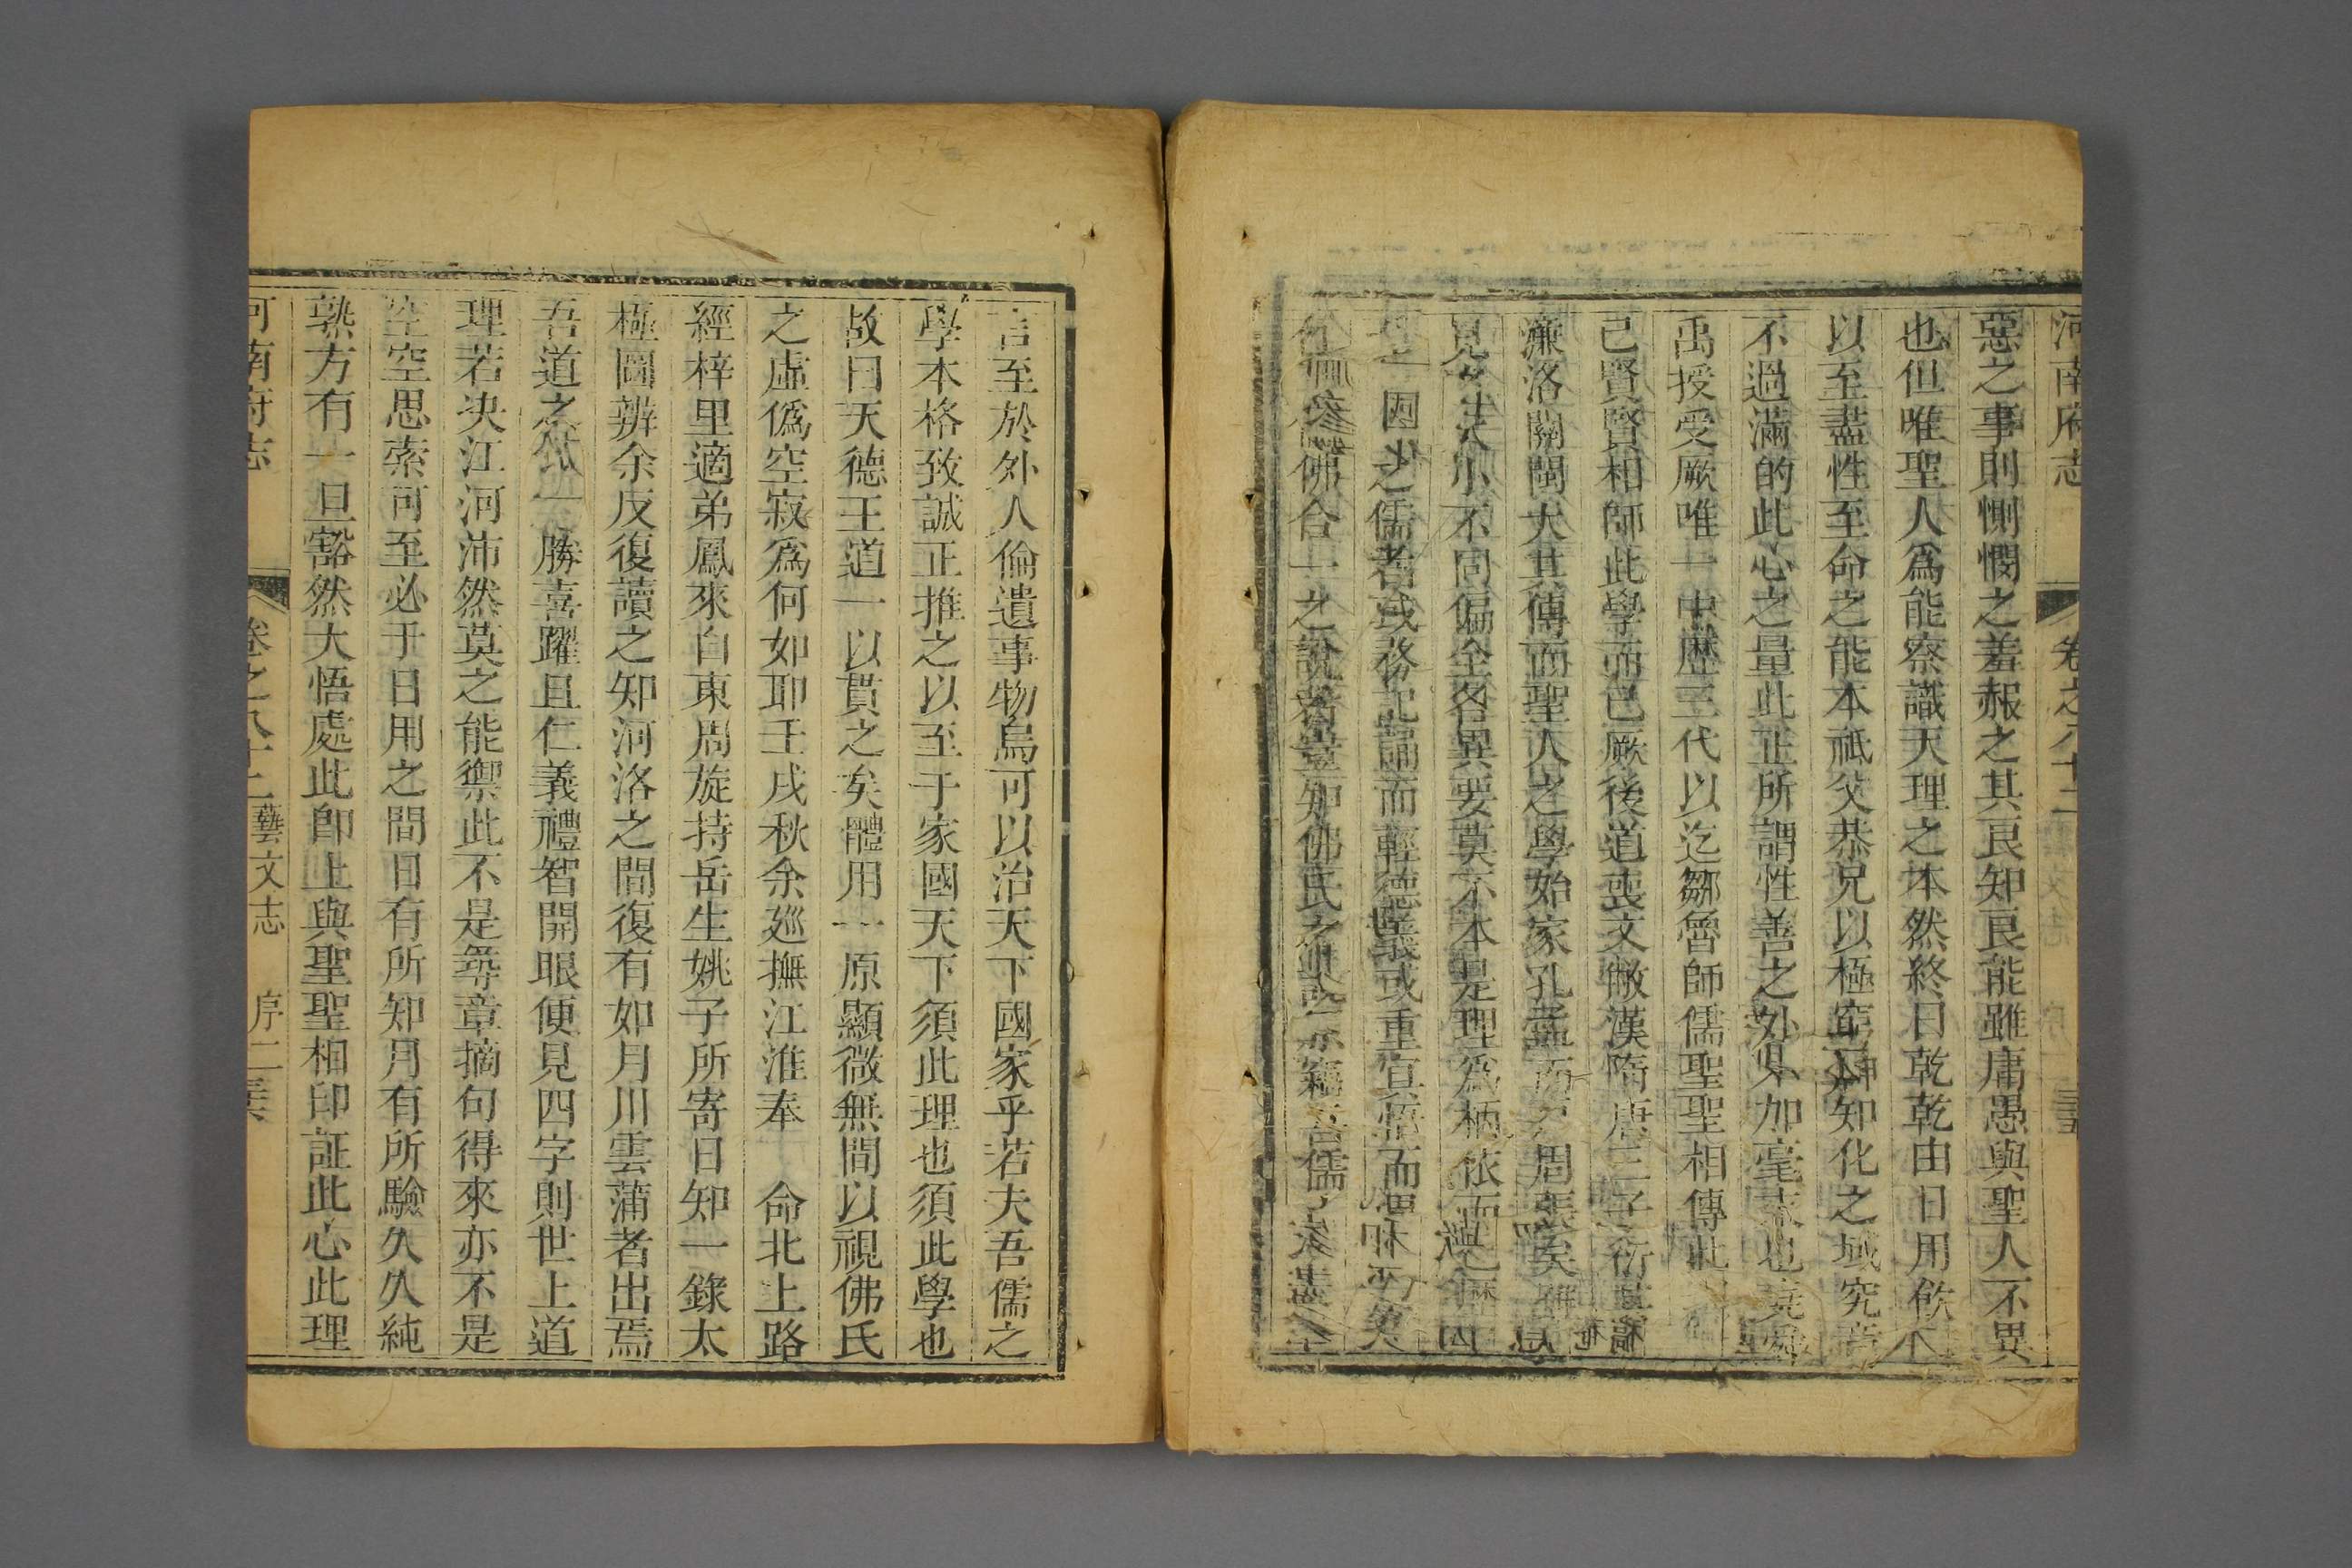 河南府志 卷之八十二
惡之事則惻憫之羞赧之其良知良能雖庸愚與聖人不異
也但唯聖人爲能察識天理之本然終日乾乾由日用飲
以至盡性至命之能本祗父恭兄以極窮神知化之域究竟
不過滿的此心之量此正所謂性善之外不加毫末也堯舜
禹授受厥唯一中歷三代以迄鄒魯師儒聖聖相傳此
己賢賢相師此學而已厥後道喪文敝漢隋唐三子衍其
濂洛關閩大其傳而聖人之學始家孔孟而戶周張矣
見大小不同偏全各異要莫不本是理爲柄依而
之儒者或務記誦而輕德義或重宜悟而
佛合一之說者豈知佛氏之 吾儒
言至於外人倫遺事物烏可以治天下國家乎若夫吾儒之
學本格致誠正推之以至于家國天下須此理也須此學也
故曰天德王道一以貫之矣體用一原顯微無間以視佛氏
之虛僞空寂爲何如耶壬戌秋余巡撫江淮奉 命北上路
經梓里適弟鳳來自東周旋持岳生姚子所寄日知一錄太
極圖辨余反復讀之知河洛之間復有如月川雲蒲者出焉
吾道之 一勝喜躍且仁義禮智開眼便見四字則世上道
理若决江河沛然莫之能禦此不是尋章摘句得來亦不是
空空思索可至必于日用之間日有所知月有所驗久久純
熟方有一旦豁然大悟處此卽上與聖聖相印証此心此理
河南府志 卷之八十二 藝文志 序二